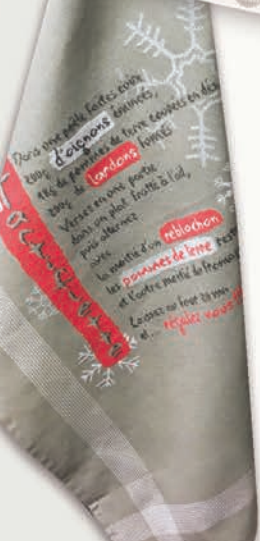 Dans une poêle faites cuire
200g d'oignons émincés,
1kg de pommes de terre coupées en dés
200g de lardons fumés
Versez en une partie
dans un plat frotté à l'ail,
puis alternez
avec la moitié d'un reblochon
les pommes de terre
et l'autre moitié du fromage
Laissez au four 20 min
et... régalez-vous !!!